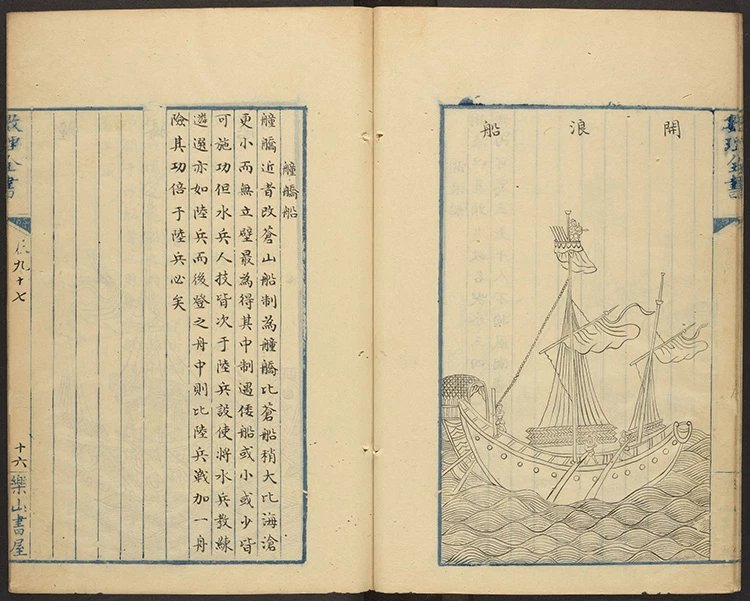 開浪船
艟𦪞船
艟𦪞近者改蒼山船制為艟𦪞比蒼船稍大比海滄
更小而無立壁最為得其中制遇倭船或小或少皆
可施功但水兵人技皆次于陸兵設使將水兵教練
遴選亦如陸兵而後登之舟中則比陸兵戰加一舟
險其功倍于陸兵必矣
全書
卷九十七
十六
樂山書屋